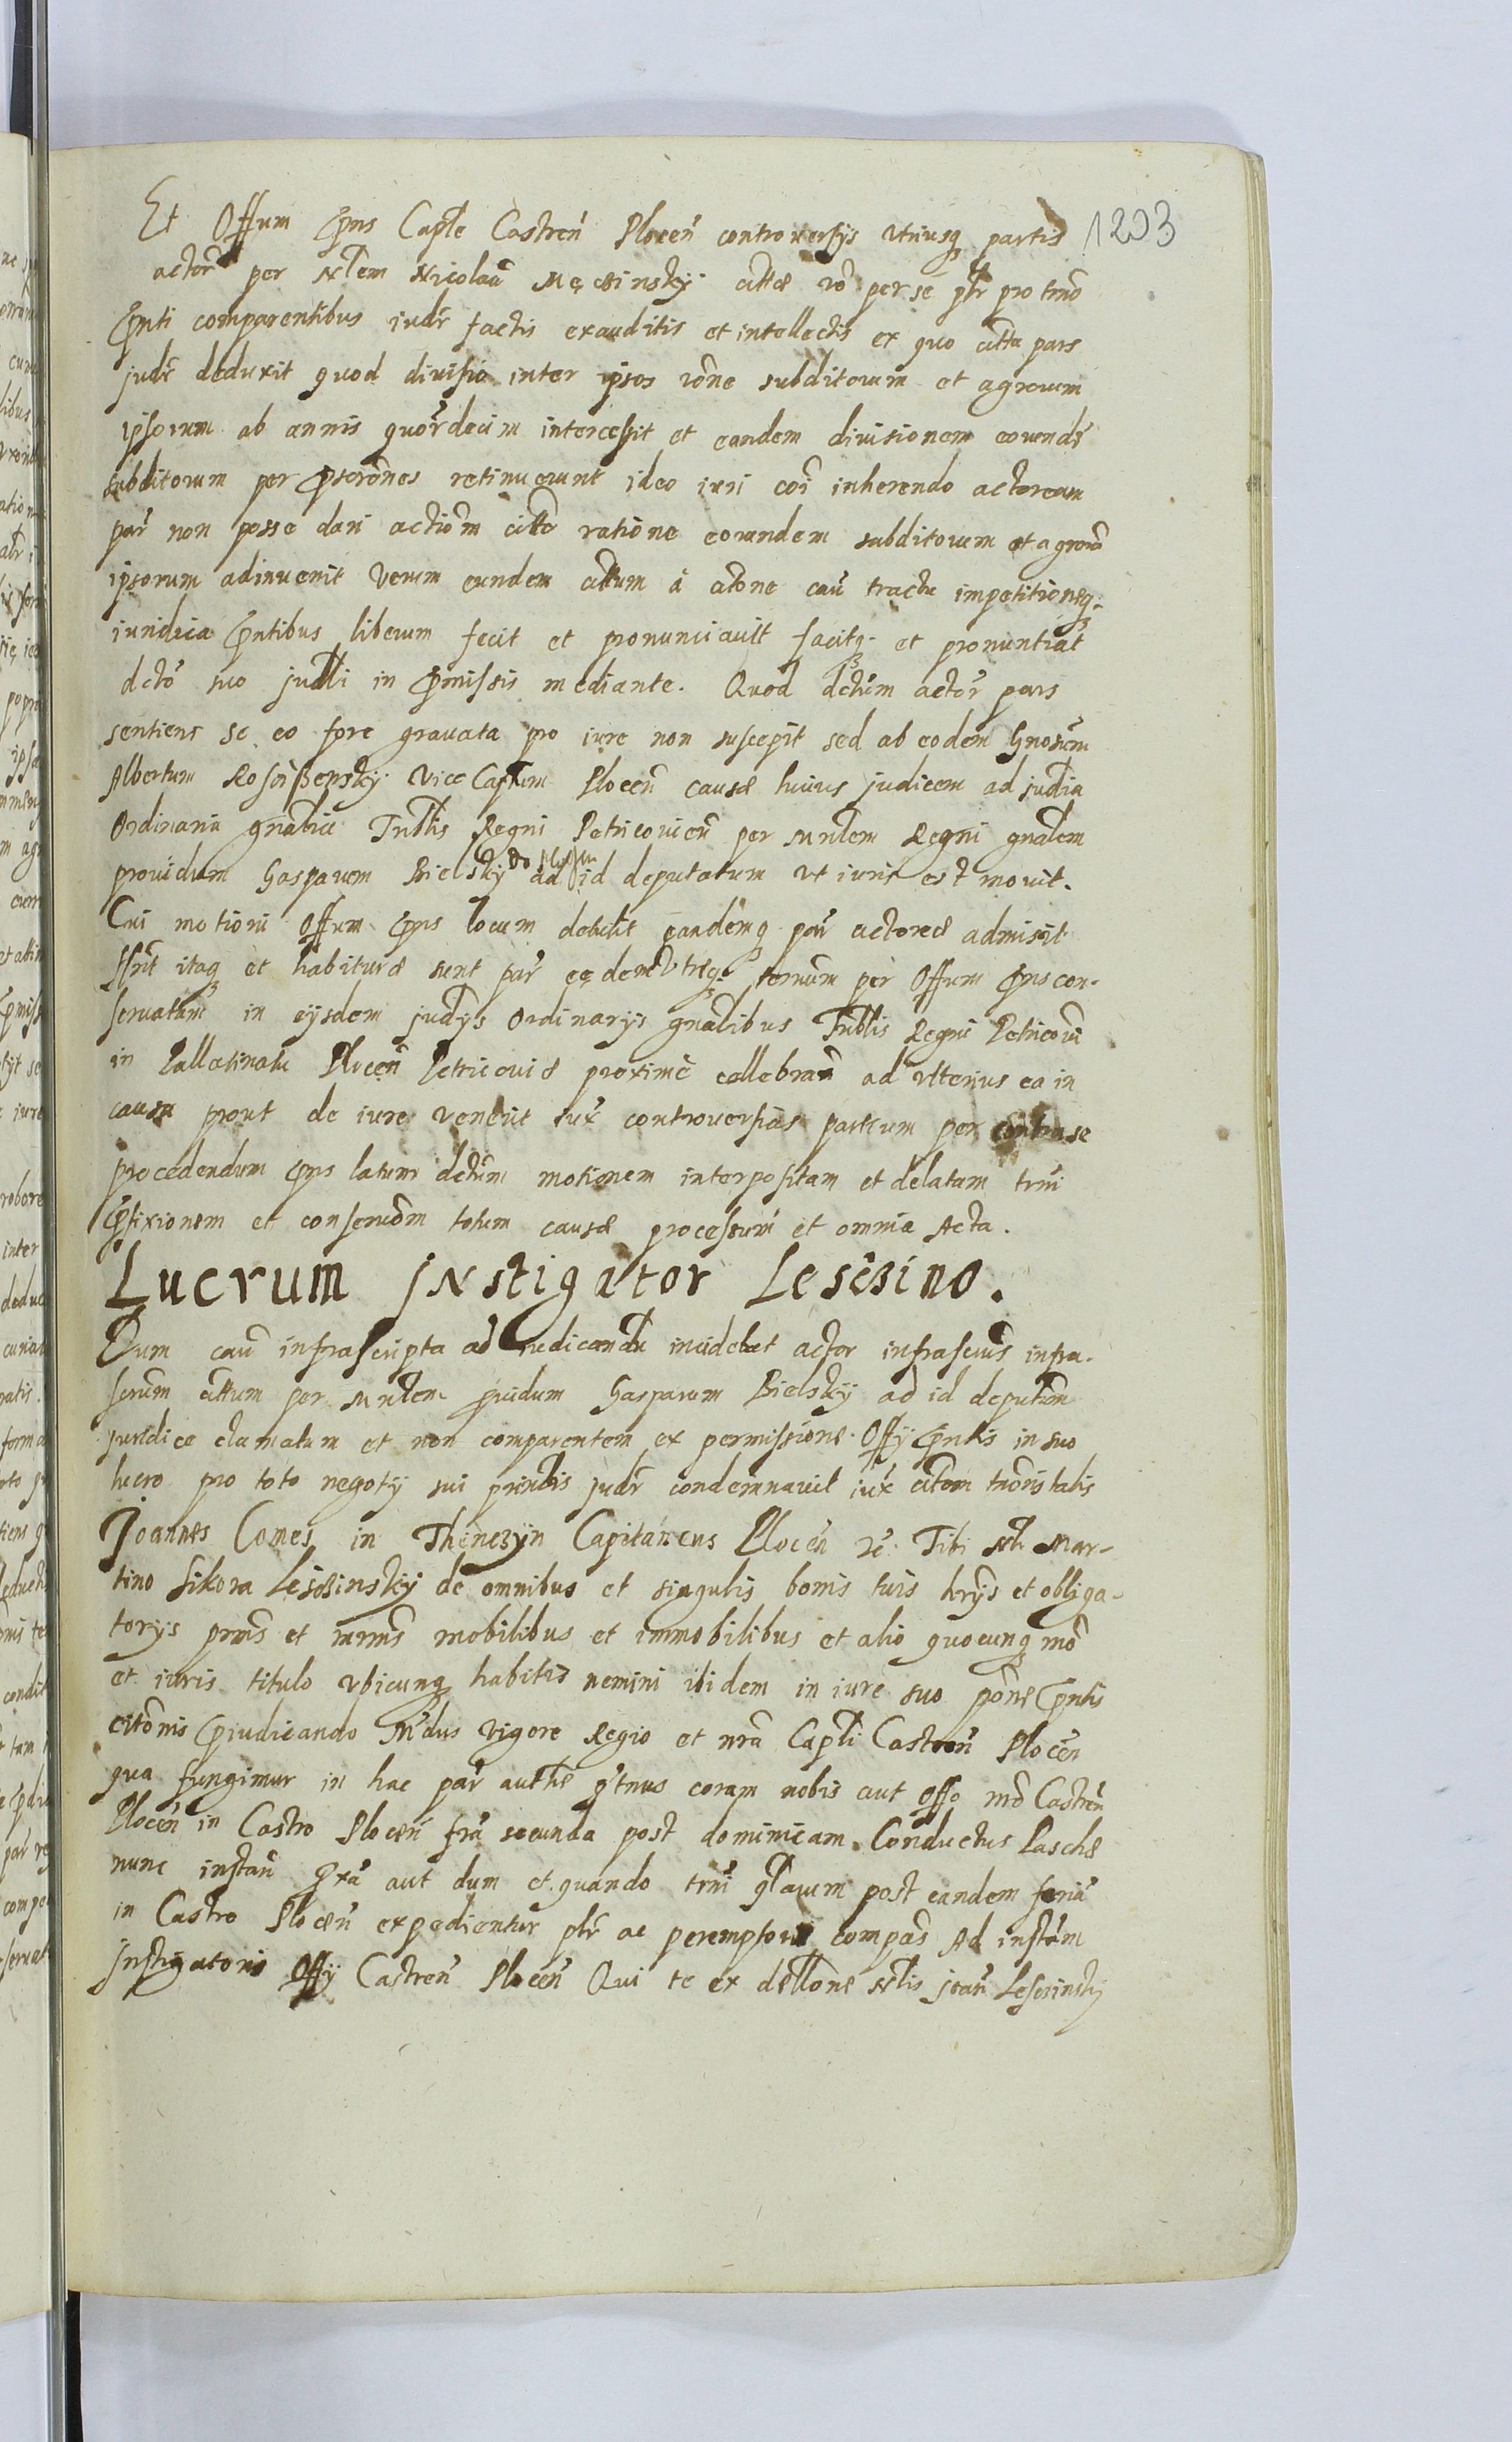 1203
Et Offum pns Caple Castren Plocen controversijs utriusq partis
actor per Nlem Nicolaũ Męczinsky citta vo per se ptr pro tmo
pnti comparentibus judr factis exauditis et intellectis ex quo citta pars
judr deduxit quod divisio inter ipsos rõne subditorum et agrorum
ipsorum ab annis quordecim intercessit et eandem divisionem eorundẽ
subditorum per pscrones retinuerunt ideo iuri coi inherendo actoream
par non posse dari actiom citte ratione eorundem subditorum et agrorũ
ipsorum adinvenit Verum eundem cittum á ctone cau tracta impetitioneq
iuridica pntibus liberum fecit et pronunciavit facitq et pronuntiat
dcto suo judli in pmissis mediante. Quod dctum actor pars
sentiens se eo fore gravata pro iure non suscepit sed ab eodem Gnosum
Albertum Rosciszensky Vice Captum Plocen causæ huius judicem ad judia
Ordinaria gnalia Trblis Regni Petricovien per mrlem Regni gnalem
providum Gasparum Bielsky do ad id deputatum ut iuris est movit.
Cui motioni Offum pns locum detulit eandemq par actoreæ admisit
Hnt itaq et habituræ sunt par eędem utręq termum per Offum pns con-
servatum in eijsdem judijs Ordinarijs gnalibus Trblis Regni Petricovi
in Pallatinatu Plocen Petricoviæ proximè cellebran ad ulterius ea in
causa prout de iure venerit iux controversias partium per contra se
procedendum pns latum dctum motionem interpositam et delatam tmi
pfixionem et conservaom totum causæ processum et omnia Acta.
Lucrum Instigator Lesczino.
Dum cau infrascripta ad iudicandu incidebat actor infrascrus infra-
scrum cittum per mrlem pvidum Gasparum Bielsky ad id deputum
juridice clamatum et non comparentem ex permissione Offij pntis in suo
lucro pro toto negotij sui prinlis judr condemnavit iux citom tnoris talis
Joannes Comes in Thenczyn Capitaneus Plocen zc Tibi Nli Mar-
tino Sikora Lesczinsky de omnibus et singulis bonis tuis hrijs et obliga-
torijs prms et mrms mobilibus et immobilibus et alio quocunq mo
et iuris titulo ubicunq habitis nemini ibidem in iure suo pone pntis
citonis pjudicando Mdus vigore Regio et nra Capli Castren Plocen
qua fungimur in hac par authe qtnus coram nobis aut Offo nro Castren
Plocen in Castro Plocen fra secunda post dominicam Conductus Paschæ
nunc instan pxa aut dum et quando tmi qlarum post eandem feria
in Castro Plocen expedientur ptr ac peremptorie compas Ad instam
Instigatoris Offij Castren Plocen Qui te ex dellone Nlis joan Lesczinsky